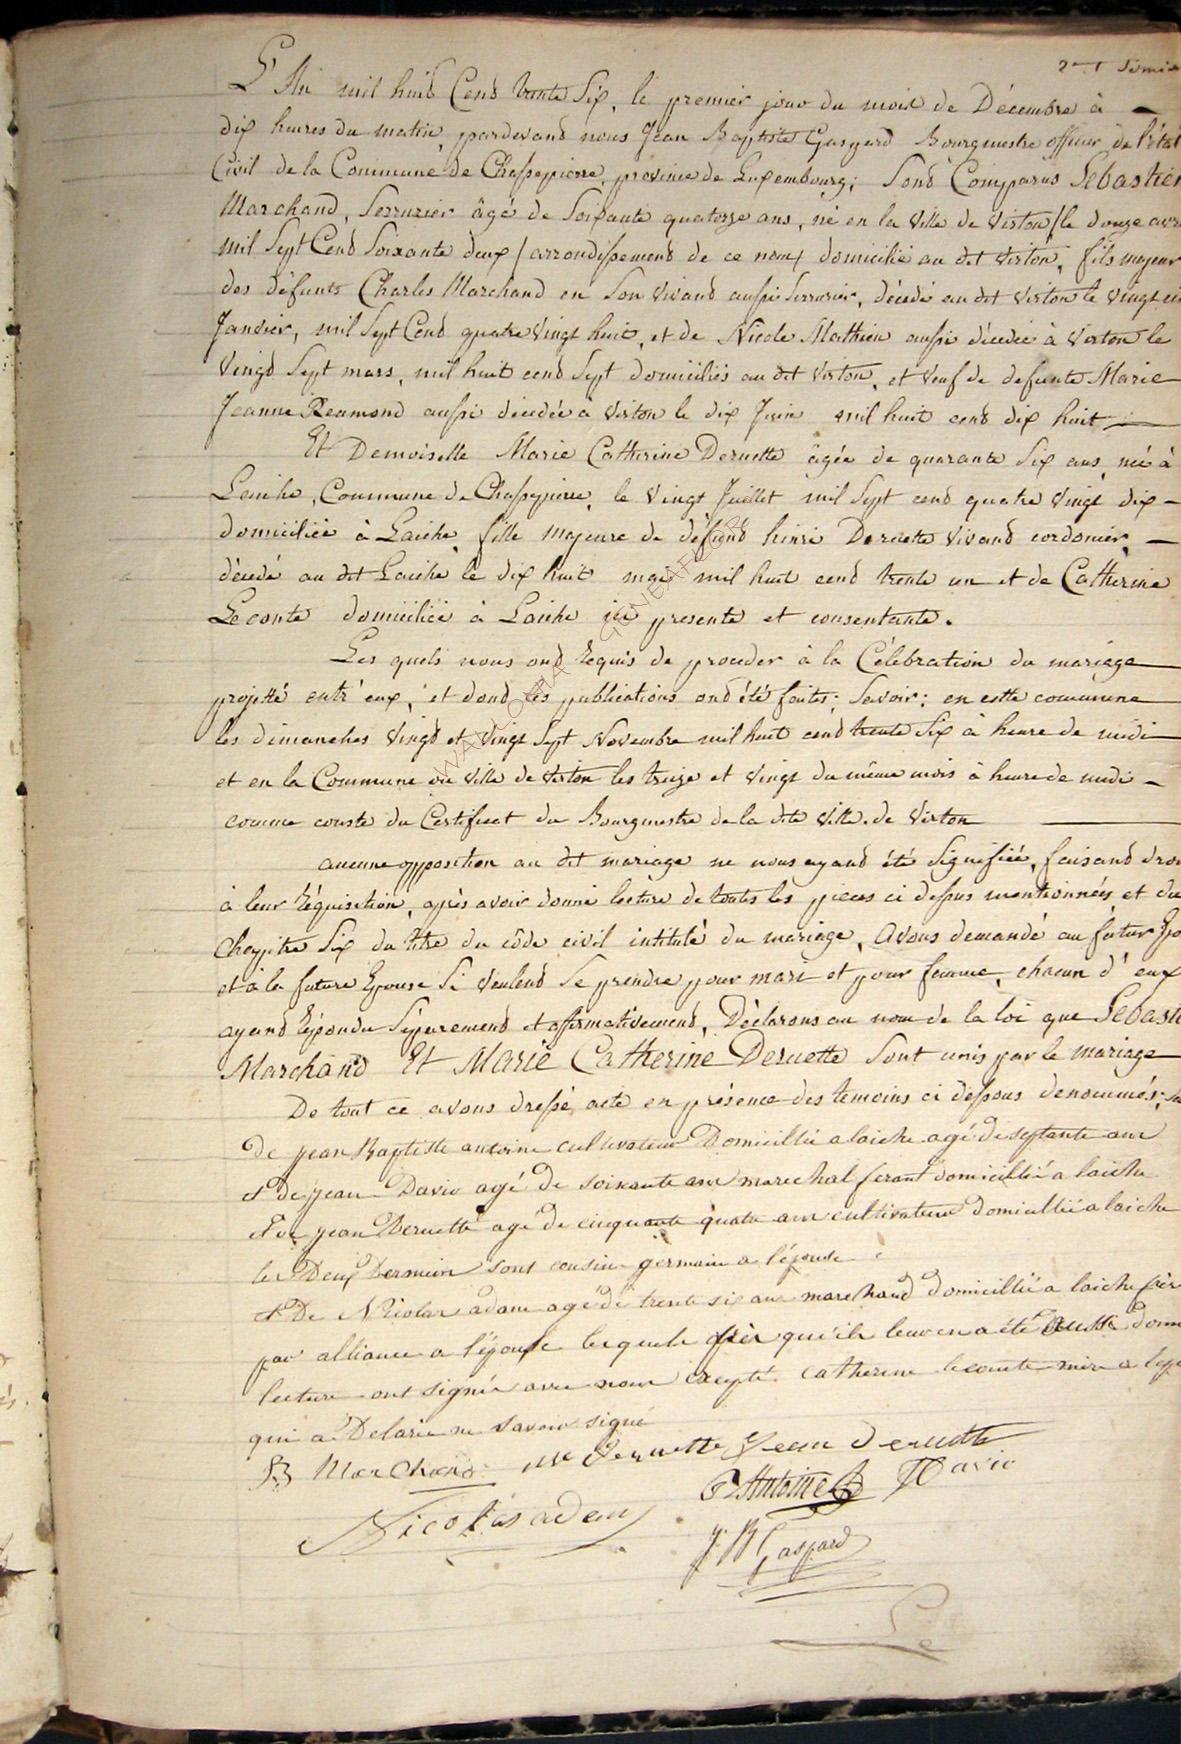 2me Semes
L'An mil huit Cend trente Six, le premier jour du mois de Décembre à
dix heures du matin, pardevand nous Jean Baptiste Gaspard Bourgmestre officier de l'état
Civil de la Commune de Chassepierre, province de Luxembourg; Sond Comparus Sébastien
Marchand, Serrurier âgé de Soixante quatorze ans, né en la ville de Virton / le douze avri
mil Sept Cend Soixante deux / arrondissemend de ce nom, domicilié au dit Virton, fils majeur
des défunts Charles Marchand en Son vivand aussi Serrurier, décédé au dit Virton le vingt
Janvier, mil Sept Cend quatre Vingt huit, et de Nicole Mathieu aussi décédée à Virton le
Vingd Sept mars, mil huit cend Sept domiciliés au dit Virton, et Veuf de defunte Marie
Jeanne Reamond aussi décedée à Virton le dix Juin mil huit cend dix huit
Et Demoiselle Marie Catherine Deruette âgée de quarante Six ans, née à
Laiche, Commune de Chassepierre, le Vingt Juillet mil Sept cend quatre Vingt dix
domiciliée à Laiche, fille majeure de défund henri Deruette vivand cordonier,
décedé au dit Laiche le dix huit mai mil huit cend trente un et de Catherine
Leconte domiciliée à Laiche ici presente et consentante.
Les quels nous ond requis de proceder à la Célébration du mariage
projetté entr'eux, et dond les publications ond été faites; Savoir: en cette commune
les dimanches Vingd et Vingt Sept Novembre mil huit cend trente Six à heure de midi
et en la Commune ou Ville de Virton les treize et Vingt du même mois à heure de midi
comme conste du Certificat du Bourgmestre de la dite Ville de Virton
aucune opposition au dit mariage ne nous ayand été Signifiée, faisand droi
à leur réquisition, après avoir donné lecture de toutes les pieces ci dessus mentionnées, et du
Chapitre Six du titre du côde civil intitulé du mariage, Avons demandé au futur Epo
et à la future Epouse Si Veulend Se prendre pour mari et pour femme, chacun d'eux
ayand répondu Séparemend et affirmativemend, Déclarons au nom de la loi que Sébasti
Marchand Et Marie Catherine Deruette Sont unis par le mariage
De tout ce avons dressé acte en présence des temoins ci dessous denommés;
De jean Baptiste antoine cultivateur Domicillié a laiche agé de septante ans
et de jean David agé de soixante ans marechal ferant domicillié a laiche
et de jean Deruette agé de cinquante quatre ans cultivateur Domicillié a laiche
les Deux Dernier sont cousin germain a l'épouse
et De Nicolas adam agé de trente six ans marchand domicillié a laiche frère
par alliance a l'épouse lesquels après qu'il leur en a été aussi donn
lecture ont signée avec nous excepté catherine leconte mère a l'ep
qui a Delaré ne savoir signé
B Marchand mc Deruette Jean deruette
P Antoine J David
Nicolas adam
J. B Gaspard
Le
WALLONIA - GENEAFOGR